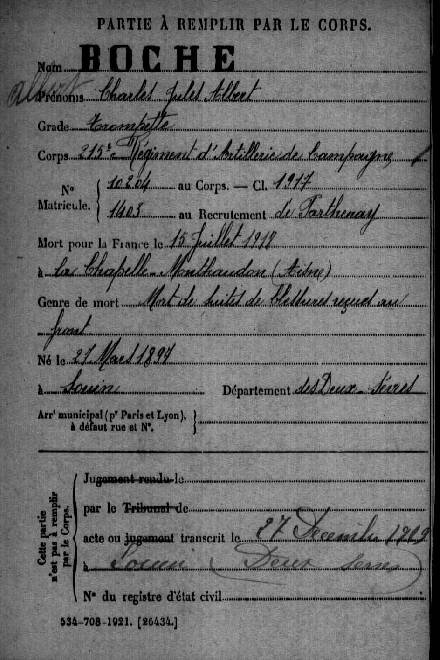 PARTIE À REMPLIR PAR LE CORPS.
Nom BOCHE
Albert
Prénoms Charles Jules Albert
Grade Trompette
Corps 215e Régiment d'Artillerie de Campagne
N° Matricule. { 10204 au Corps. — Cl. 1917
1403 au Recrutement de Parthenay
Mort pour la France le 15 Juillet 1918
à la Chapelle-Monthaudon (Aisne)
Genre de mort Mort de suites de blessures reçues au
front
Né le 21 Mars 1897
à Louin Département des Deux-Sèvres
Arrt municipal (pr Paris et Lyon), à défaut rue et N°. }
Cette partie n'est pas à remplir par le Corps.
Jugement rendu le
par le Tribunal de
acte ou jugement transcrit le 27 Decembre
à Louin (Deux Sevres)
N° du registre d'état civil
534-708-1921. [26434.]